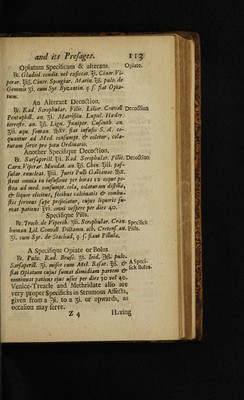 and its Presages. 113
Opiatum Specificum & alterans. Opiate.
℞. Gladioli condit. vel rosaceæ ℥j. Ciner. Vi-
perar. Ciner. Spongiæ. Marin. pulv. de
Gemmis ʒj. cum Syr. Byzantin. q. s. fiat Opia-
tum.
An Alterant Decoction.
℞. Rad. Scrophular. Filic. Lilior. Convall. Decoction
Pentaphyl. an. ʒj. Marrubii. Lupul. Heder.
terrestr. an. Lign. Juniper. Cusinth. an.
aqu. fontan. stat infusio S. A. co-
quantur ad Med. consumpt. & coletur, cola-
turam serve pro potu Ordinario.
Another Specifique Decoction.
℞. Sarsaparill. Rad. Scrophular. Filic. Decoction
Caru. Viperar. Mundat. an. Chin. pas-
sular. enucleat. Juris Pulli Gallinac.
stent omnia in infusione per horas 12. coque po-
stea ad med. consumpt. cola, colaturam distilla,
& liquor elicitus, fecibus calcinatis & combu-
stis servetur sæpe projiciatur, cujus liquoris su-
mat patiens vespere per dies 40.
Specifique Pills.
℞. Troch. de Viperib. Scrophular. Cran. Specifick
human. Lil. Convall. Dictamn. alb. Cretens. an. Pills.
ʒj. cum Syr. de Stœchad, q. s. fiant Pillula.
A Specifique Opiate or Bolus.
℞. Pulv. Rad. Brusc. Ireid. pulv.
Sarsaparill. ʒj. misce cum Mel. Rosar. & A Speci-
fiat Opiatum cujus sumat dimidiam partem & fick Bolus.
continuat patiens ejus usus per dies 30 vel 40.
Venice-Treacle and Methridate also are
very proper Specificks in Strumous Affects,
given from a to a or upwards, as
occasion may serve.
Z 4 Having